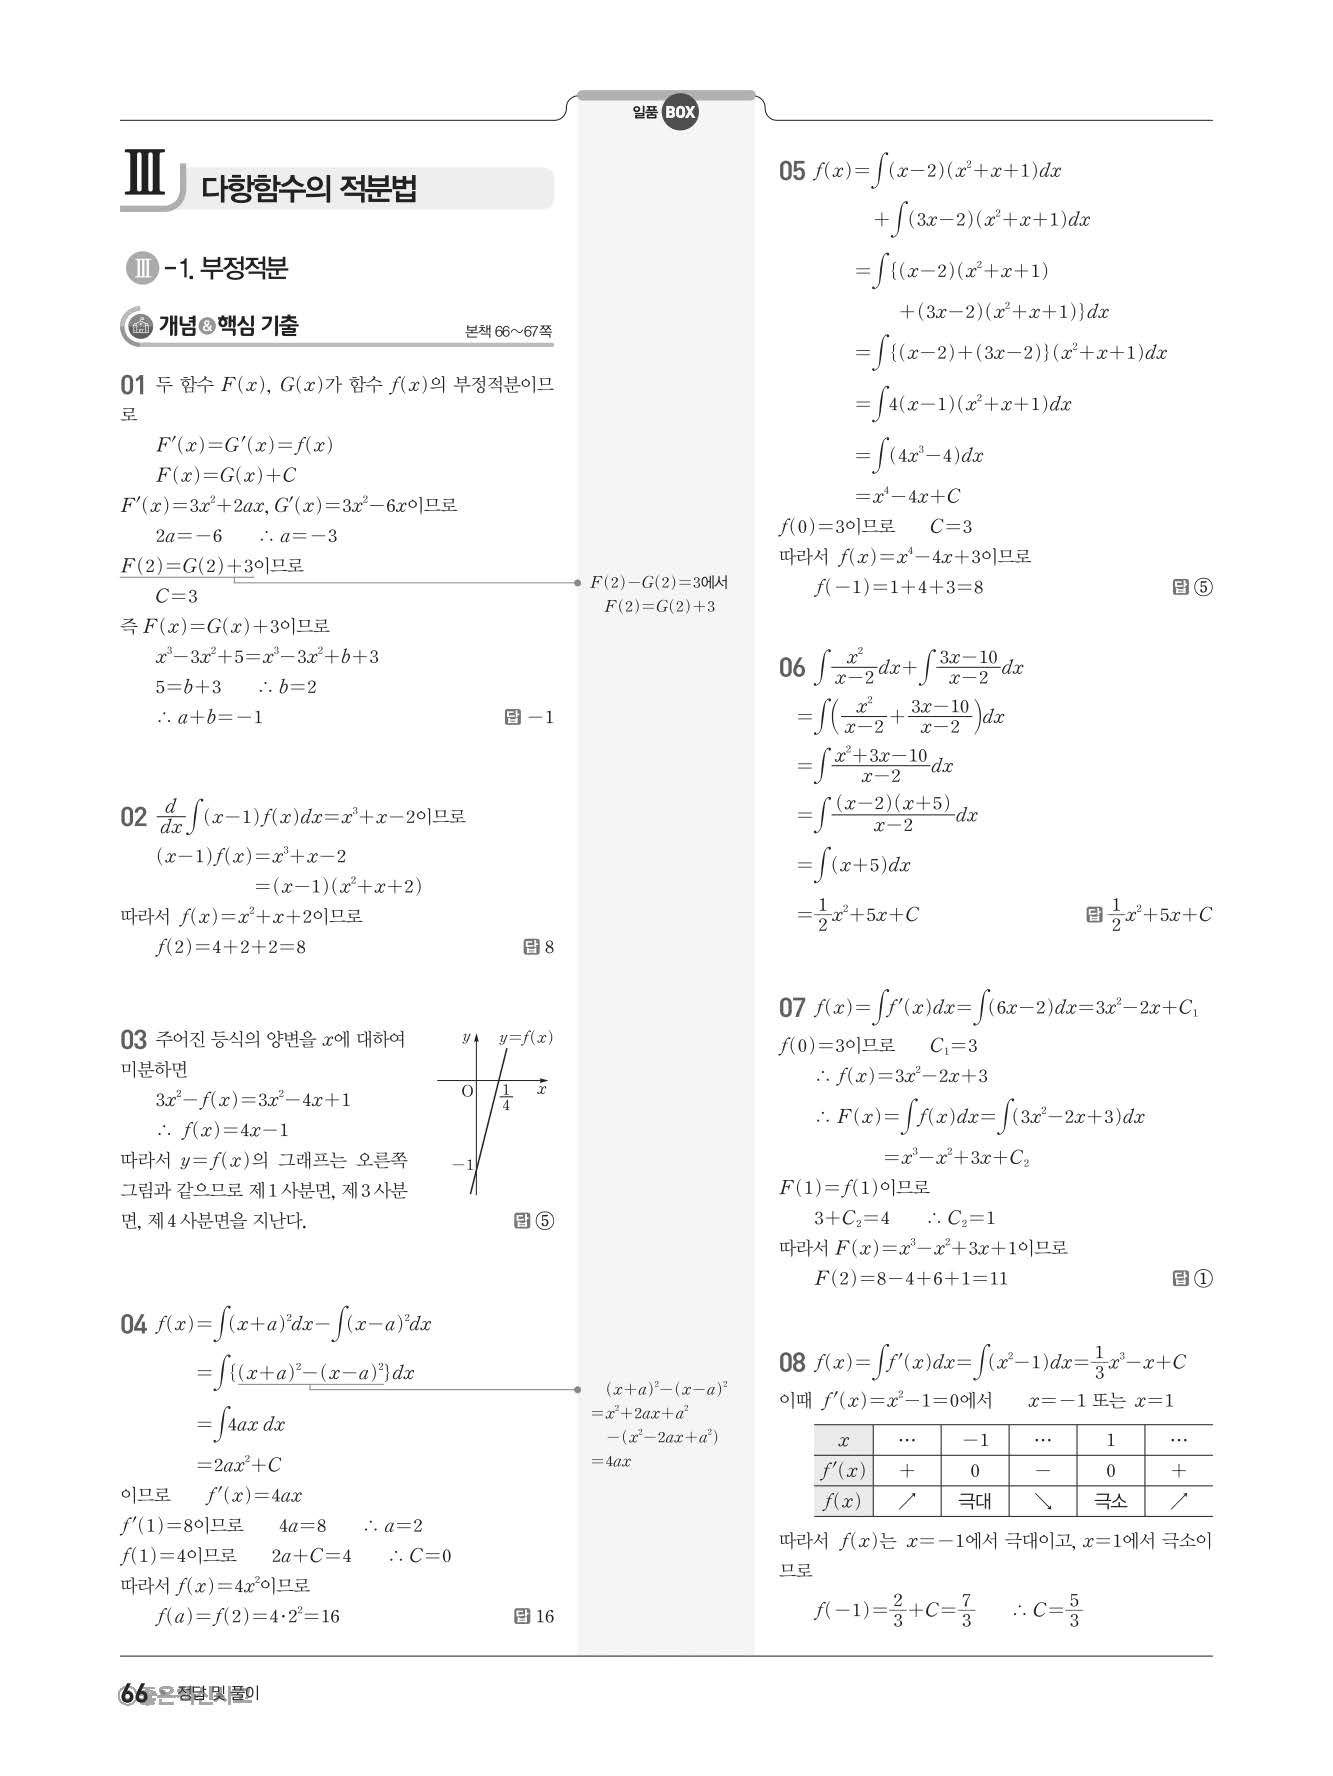 일품 BOX
Ⅲ 다항함수의 적분법
Ⅲ-1. 부정적분
개념&핵심 기출 본책 66~67쪽
01 두 함수 F(x), G(x)가 함수 f(x)의 부정적분이므
로
F′(x)=G′(x)=f(x)
F(x)=G(x)+C
F′(x)=3x²+2ax, G′(x)=3x²-6x이므로
2a=-6 ∴ a=-3
F(2)=G(2)+3이므로
C=3
즉 F(x)=G(x)+3이므로
x³-3x²+5=x³-3x²+b+3
5=b+3 ∴ b=2
∴ a+b=-1 답 -1
02 d/dx ∫(x-1)f(x)dx=x³+x-2이므로
(x-1)f(x)=x³+x-2
=(x-1)(x²+x+2)
따라서 f(x)=x²+x+2이므로
f(2)=4+2+2=8 답 8
03 주어진 등식의 양변을 x에 대하여
미분하면
3x²-f(x)=3x²-4x+1
∴ f(x)=4x-1
따라서 y=f(x)의 그래프는 오른쪽
그림과 같으므로 제1사분면, 제3사분
면, 제4사분면을 지난다. 답 ⑤
y y=f(x)
O 1/4 x
-1
04 f(x)=∫(x+a)²dx-∫(x-a)²dx
=∫{(x+a)²-(x-a)²}dx
=∫4ax dx
=2ax²+C
이므로 f′(x)=4ax
f′(1)=8이므로 4a=8 ∴ a=2
f(1)=4이므로 2a+C=4 ∴ C=0
따라서 f(x)=4x²이므로
f(a)=f(2)=4·2²=16 답 16
F(2)-G(2)=3에서
F(2)=G(2)+3
(x+a)²-(x-a)²
=x²+2ax+a²
-(x²-2ax+a²)
=4ax
05 f(x)=∫(x-2)(x²+x+1)dx
+∫(3x-2)(x²+x+1)dx
=∫{(x-2)(x²+x+1)
+(3x-2)(x²+x+1)}dx
=∫{(x-2)+(3x-2)}(x²+x+1)dx
=∫4(x-1)(x²+x+1)dx
=∫(4x³-4)dx
=x⁴-4x+C
f(0)=3이므로 C=3
따라서 f(x)=x⁴-4x+3이므로
f(-1)=1+4+3=8 답 ⑤
06 ∫x²/(x-2) dx+∫(3x-10)/(x-2) dx
=∫(x²/(x-2)+(3x-10)/(x-2))dx
=∫(x²+3x-10)/(x-2) dx
=∫(x-2)(x+5)/(x-2) dx
=∫(x+5)dx
=1/2x²+5x+C 답 1/2x²+5x+C
07 f(x)=∫f′(x)dx=∫(6x-2)dx=3x²-2x+C₁
f(0)=3이므로 C₁=3
∴ f(x)=3x²-2x+3
∴ F(x)=∫f(x)dx=∫(3x²-2x+3)dx
=x³-x²+3x+C₂
F(1)=f(1)이므로
3+C₂=4 ∴ C₂=1
따라서 F(x)=x³-x²+3x+1이므로
F(2)=8-4+6+1=11 답 ①
08 f(x)=∫f′(x)dx=∫(x²-1)dx=1/3x³-x+C
이때 f′(x)=x²-1=0에서 x=-1 또는 x=1
x … -1 … 1 …
f′(x) + 0 - 0 +
f(x) ↗ 극대 ↘ 극소 ↗
따라서 f(x)는 x=-1에서 극대이고, x=1에서 극소이
므로
f(-1)=2/3+C=7/3 ∴ C=5/3
66 정답 및 풀이